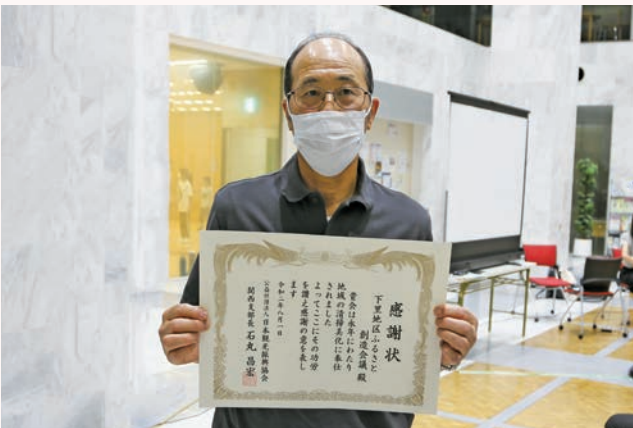 感謝状
下里地区ふるさと
創造会議 殿
貴会は永年にわたり
地域の清掃美化に奉仕
されました
よってここにその功労
を讃え感謝の意を表し
ます
令和二年八月一日
公益社団法人 日本観光振興協会
関西支部長 石丸昌宏